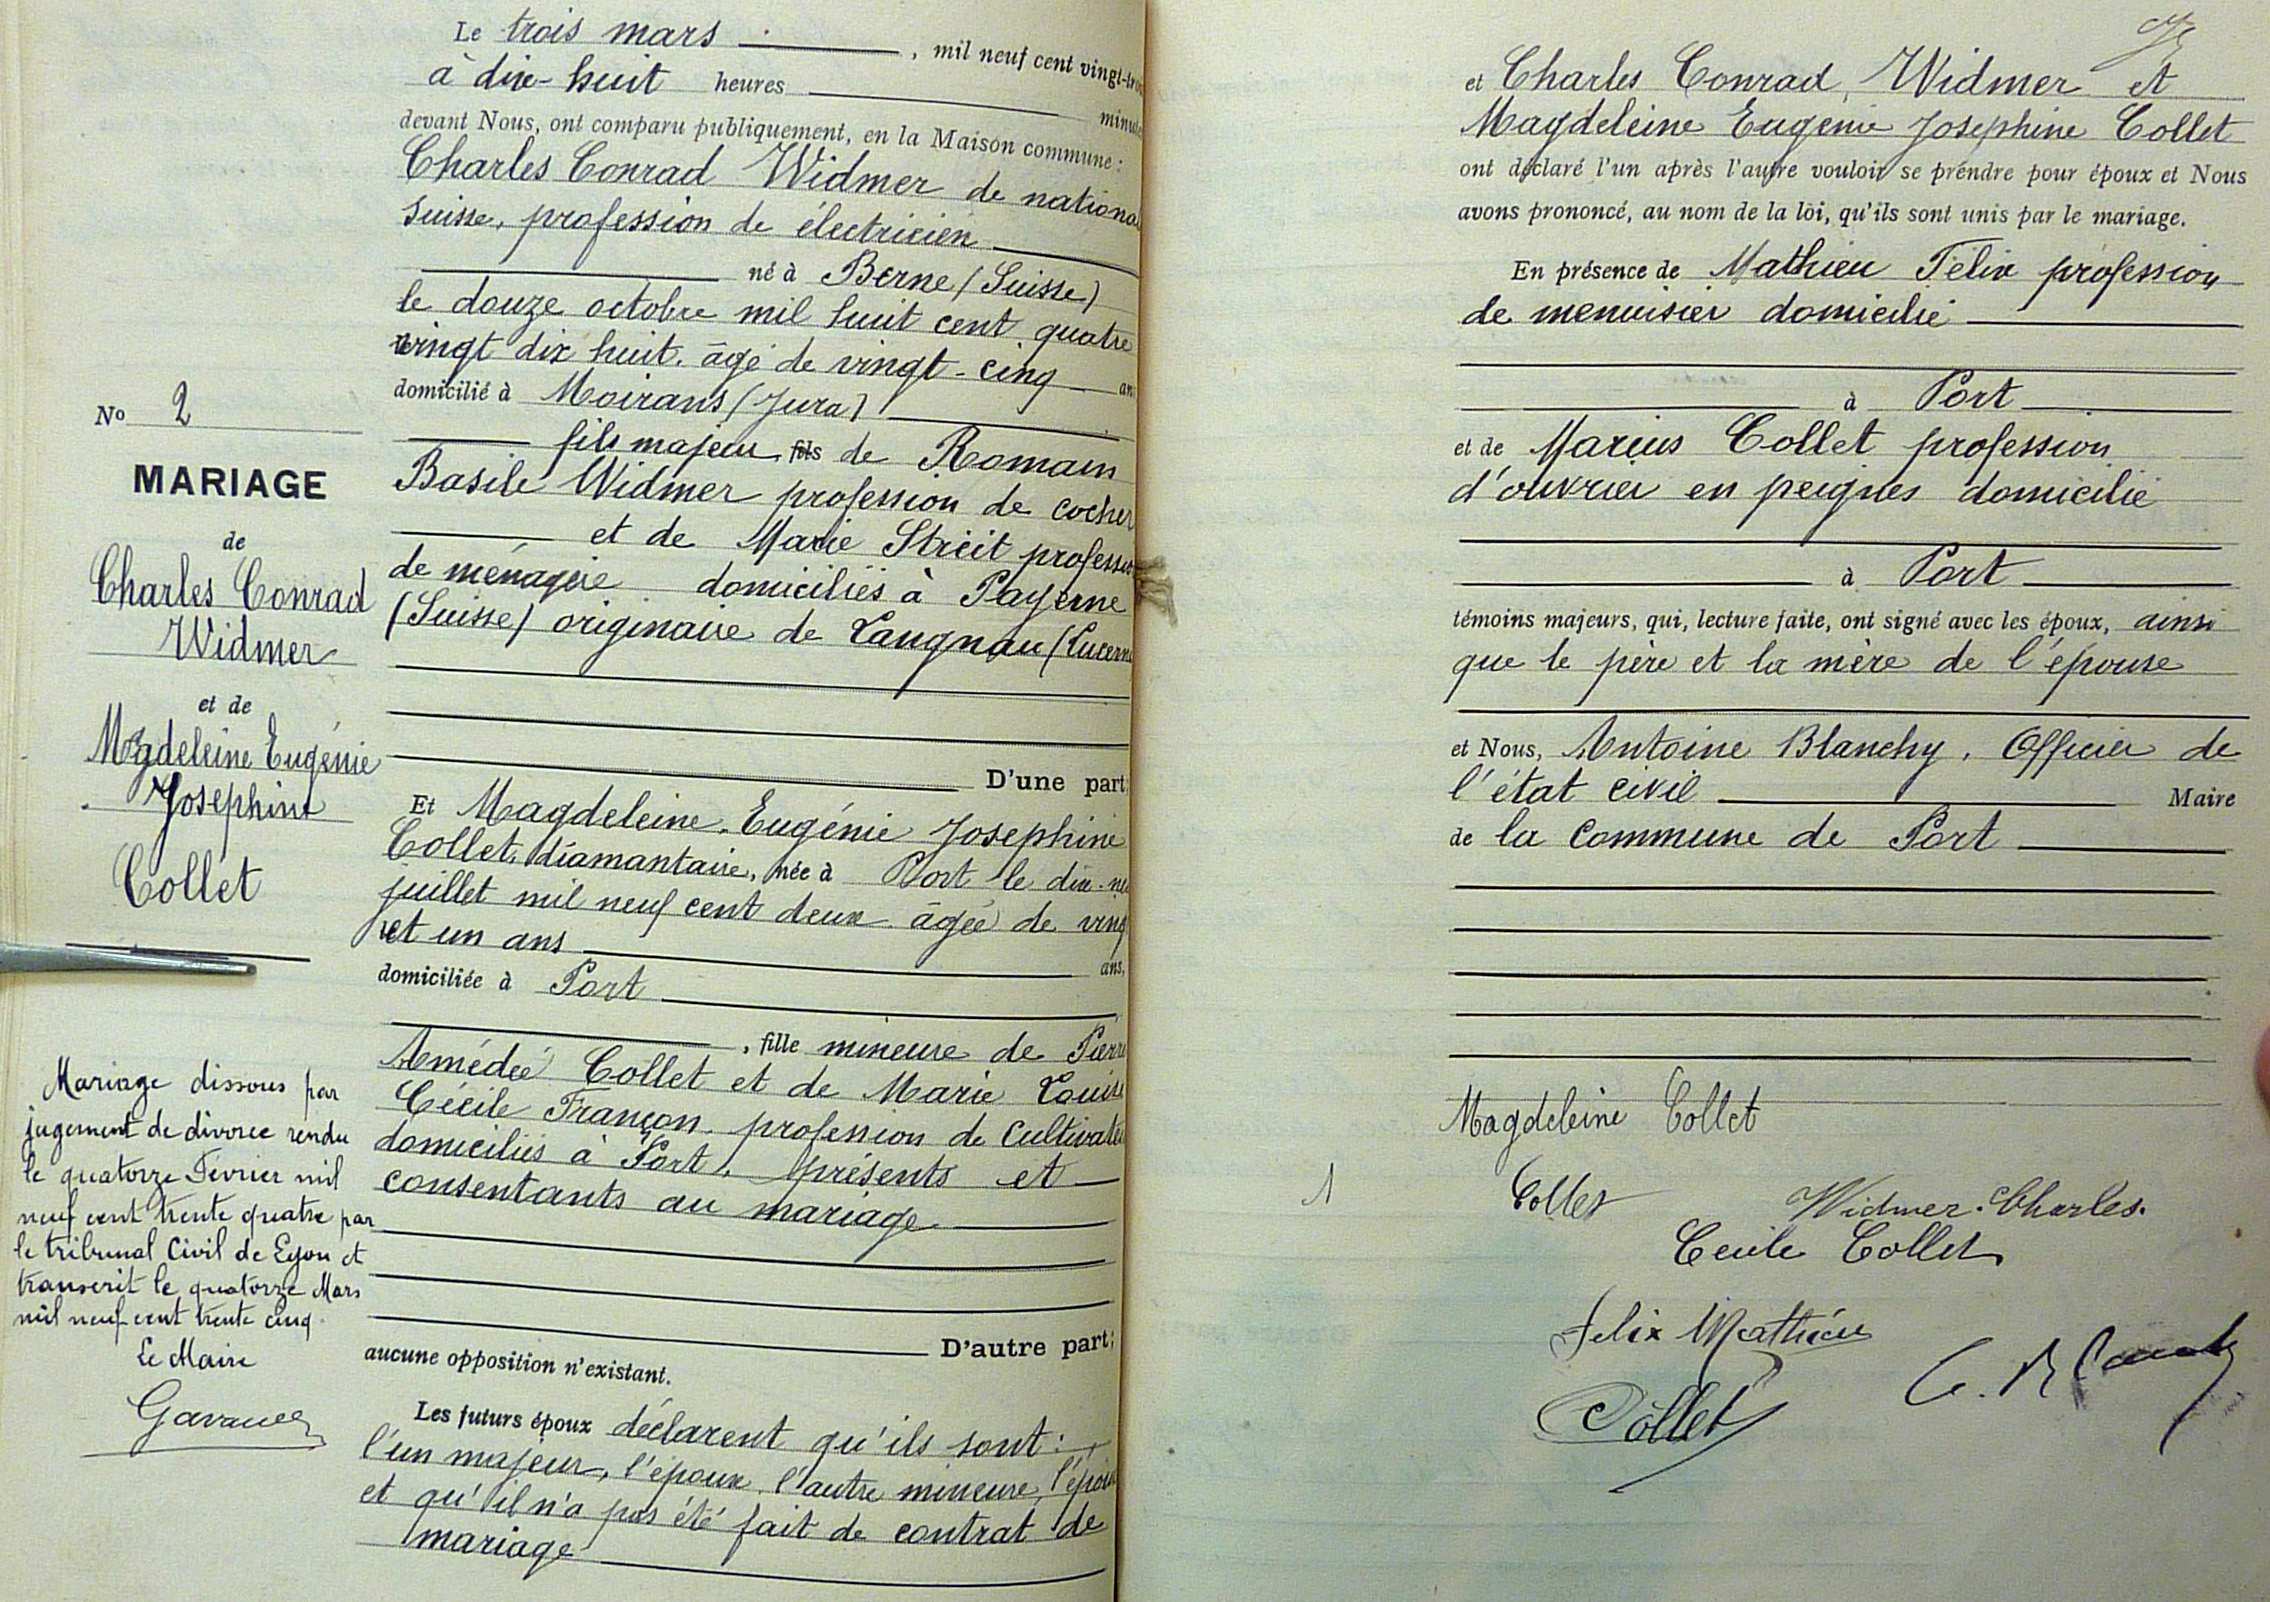 Le trois mars, mil neuf cent vingt-tro
à dix-huit heures minutes
devant Nous, ont comparu publiquement, en la Maison commune :
Charles Conrad Widmer de nationa
Suisse, profession de électricien
né à Berne (Suisse)
le douze octobre mil huit cent quatre
vingt dix huit. âgé de vingt-cinq an
domicilié à Moirans (Jura)
fils majeur, fils de Romain
Basile Widmer profession de cocher
et de Marie Streit profession
de ménagère domiciliés à Payerne
(Suisse) originaire de Langnau (Lucerne
D'une part;
Et Magdeleine Eugénie Josephine
Collet, diamantaire, née à Port le dix-ne
juillet mil neuf cent deux âgée de ving
et un ans ans,
domiciliée à Port
, fille mineure de Pierre
Amédée Collet et de Marie Louise
Cécile Françon profession de cultivate
domiciliés à Port, présents et
consentants au mariage.
D'autre part;
aucune opposition n'existant.
Les futurs époux déclarent qu'ils sont :
l'un majeur, l'époux, l'autre mineure, l'épou
et qu'il n'a pas été fait de contrat de
mariage
No 2
MARIAGE
de
Charles Conrad
Widmer
et de
Magdeleine Eugénie
Josephine
Collet
Mariage dissous par
jugement de divorce rendu
le quatorze Février mil
neuf cent trente quatre par
le tribunal Civil de Lyon et
transcrit le quatorze Mars
mil neuf cent trente cinq.
Le Maire
et Charles Conrad, Widmer et
Magdeleine Eugenie Josephine Collet
ont déclaré l'un après l'autre vouloir se prendre pour époux et Nous
avons prononcé, au nom de la loi, qu'ils sont unis par le mariage.
En présence de Mathieu Félix profession
de menuisier domicilié
à Port
et de Marius Collet profession
d'ouvrier en peignes domicilié
à Port
témoins majeurs, qui, lecture faite, ont signé avec les époux, ainsi
que le père et la mère de l'épouse
et Nous, Antoine Blanchy, Officier de
l'état civil Maire
de la commune de Port
Magdeleine Collet
1
Collet Widmer Charles.
Cecile Collet
Felix Mathieu
Collet